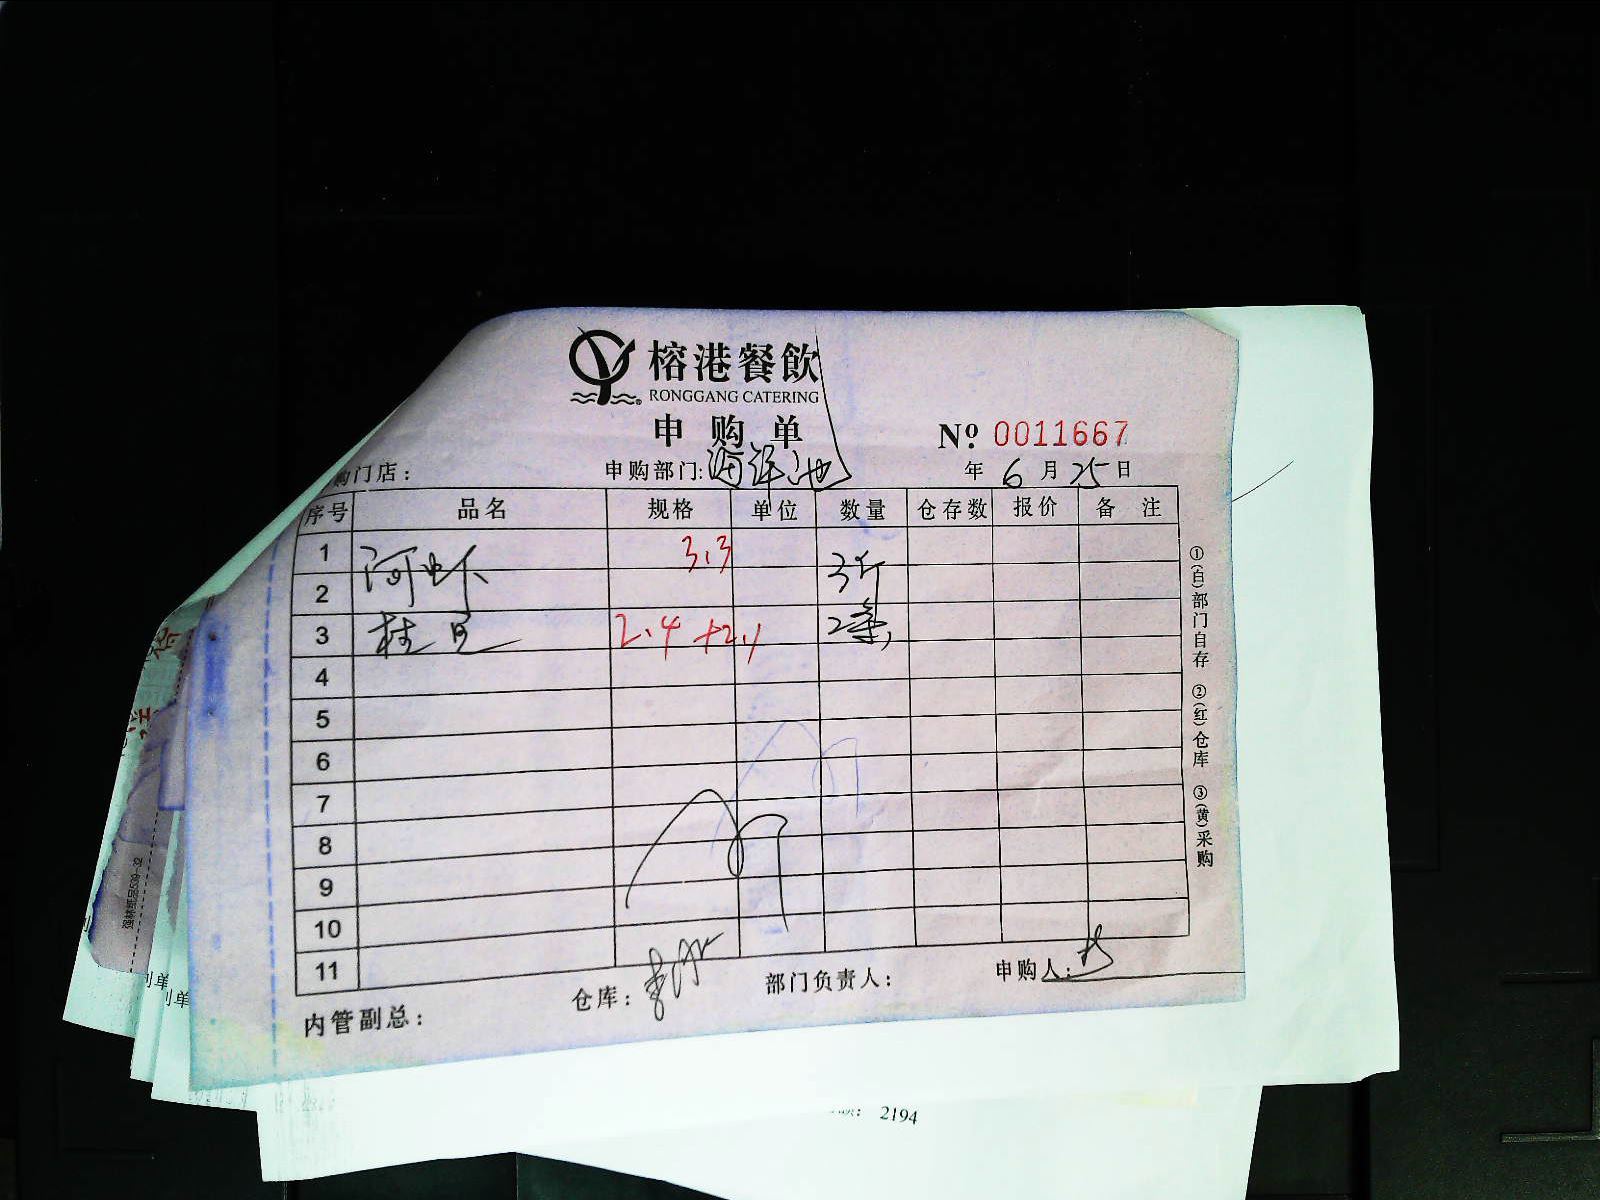 榕港餐飲
RONGGANG CATERING
申购单
№ 0011667
购门店： 申购部门:海洋池 年 6 月 25 日
序号 品名 规格 单位 数量 仓存数 报价 备注
1 河虾 3.3 3斤
2
3 桂鱼 2.4 +2.1 2条
4
5
6
7
8
9
10
11
内管副总： 仓库： 部门负责人： 申购人：
①(白)部门自存 ②(红)仓库 ③(黄)采购
列单
列单
2194